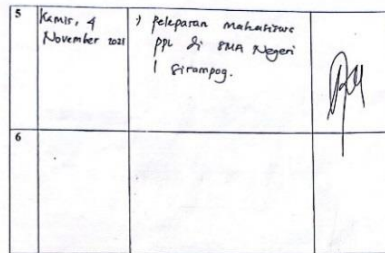 5
Kamis, 4
November 2021
1) peleparan mahasiswa
PPL di SMA Negeri
1 Sirampog.
6